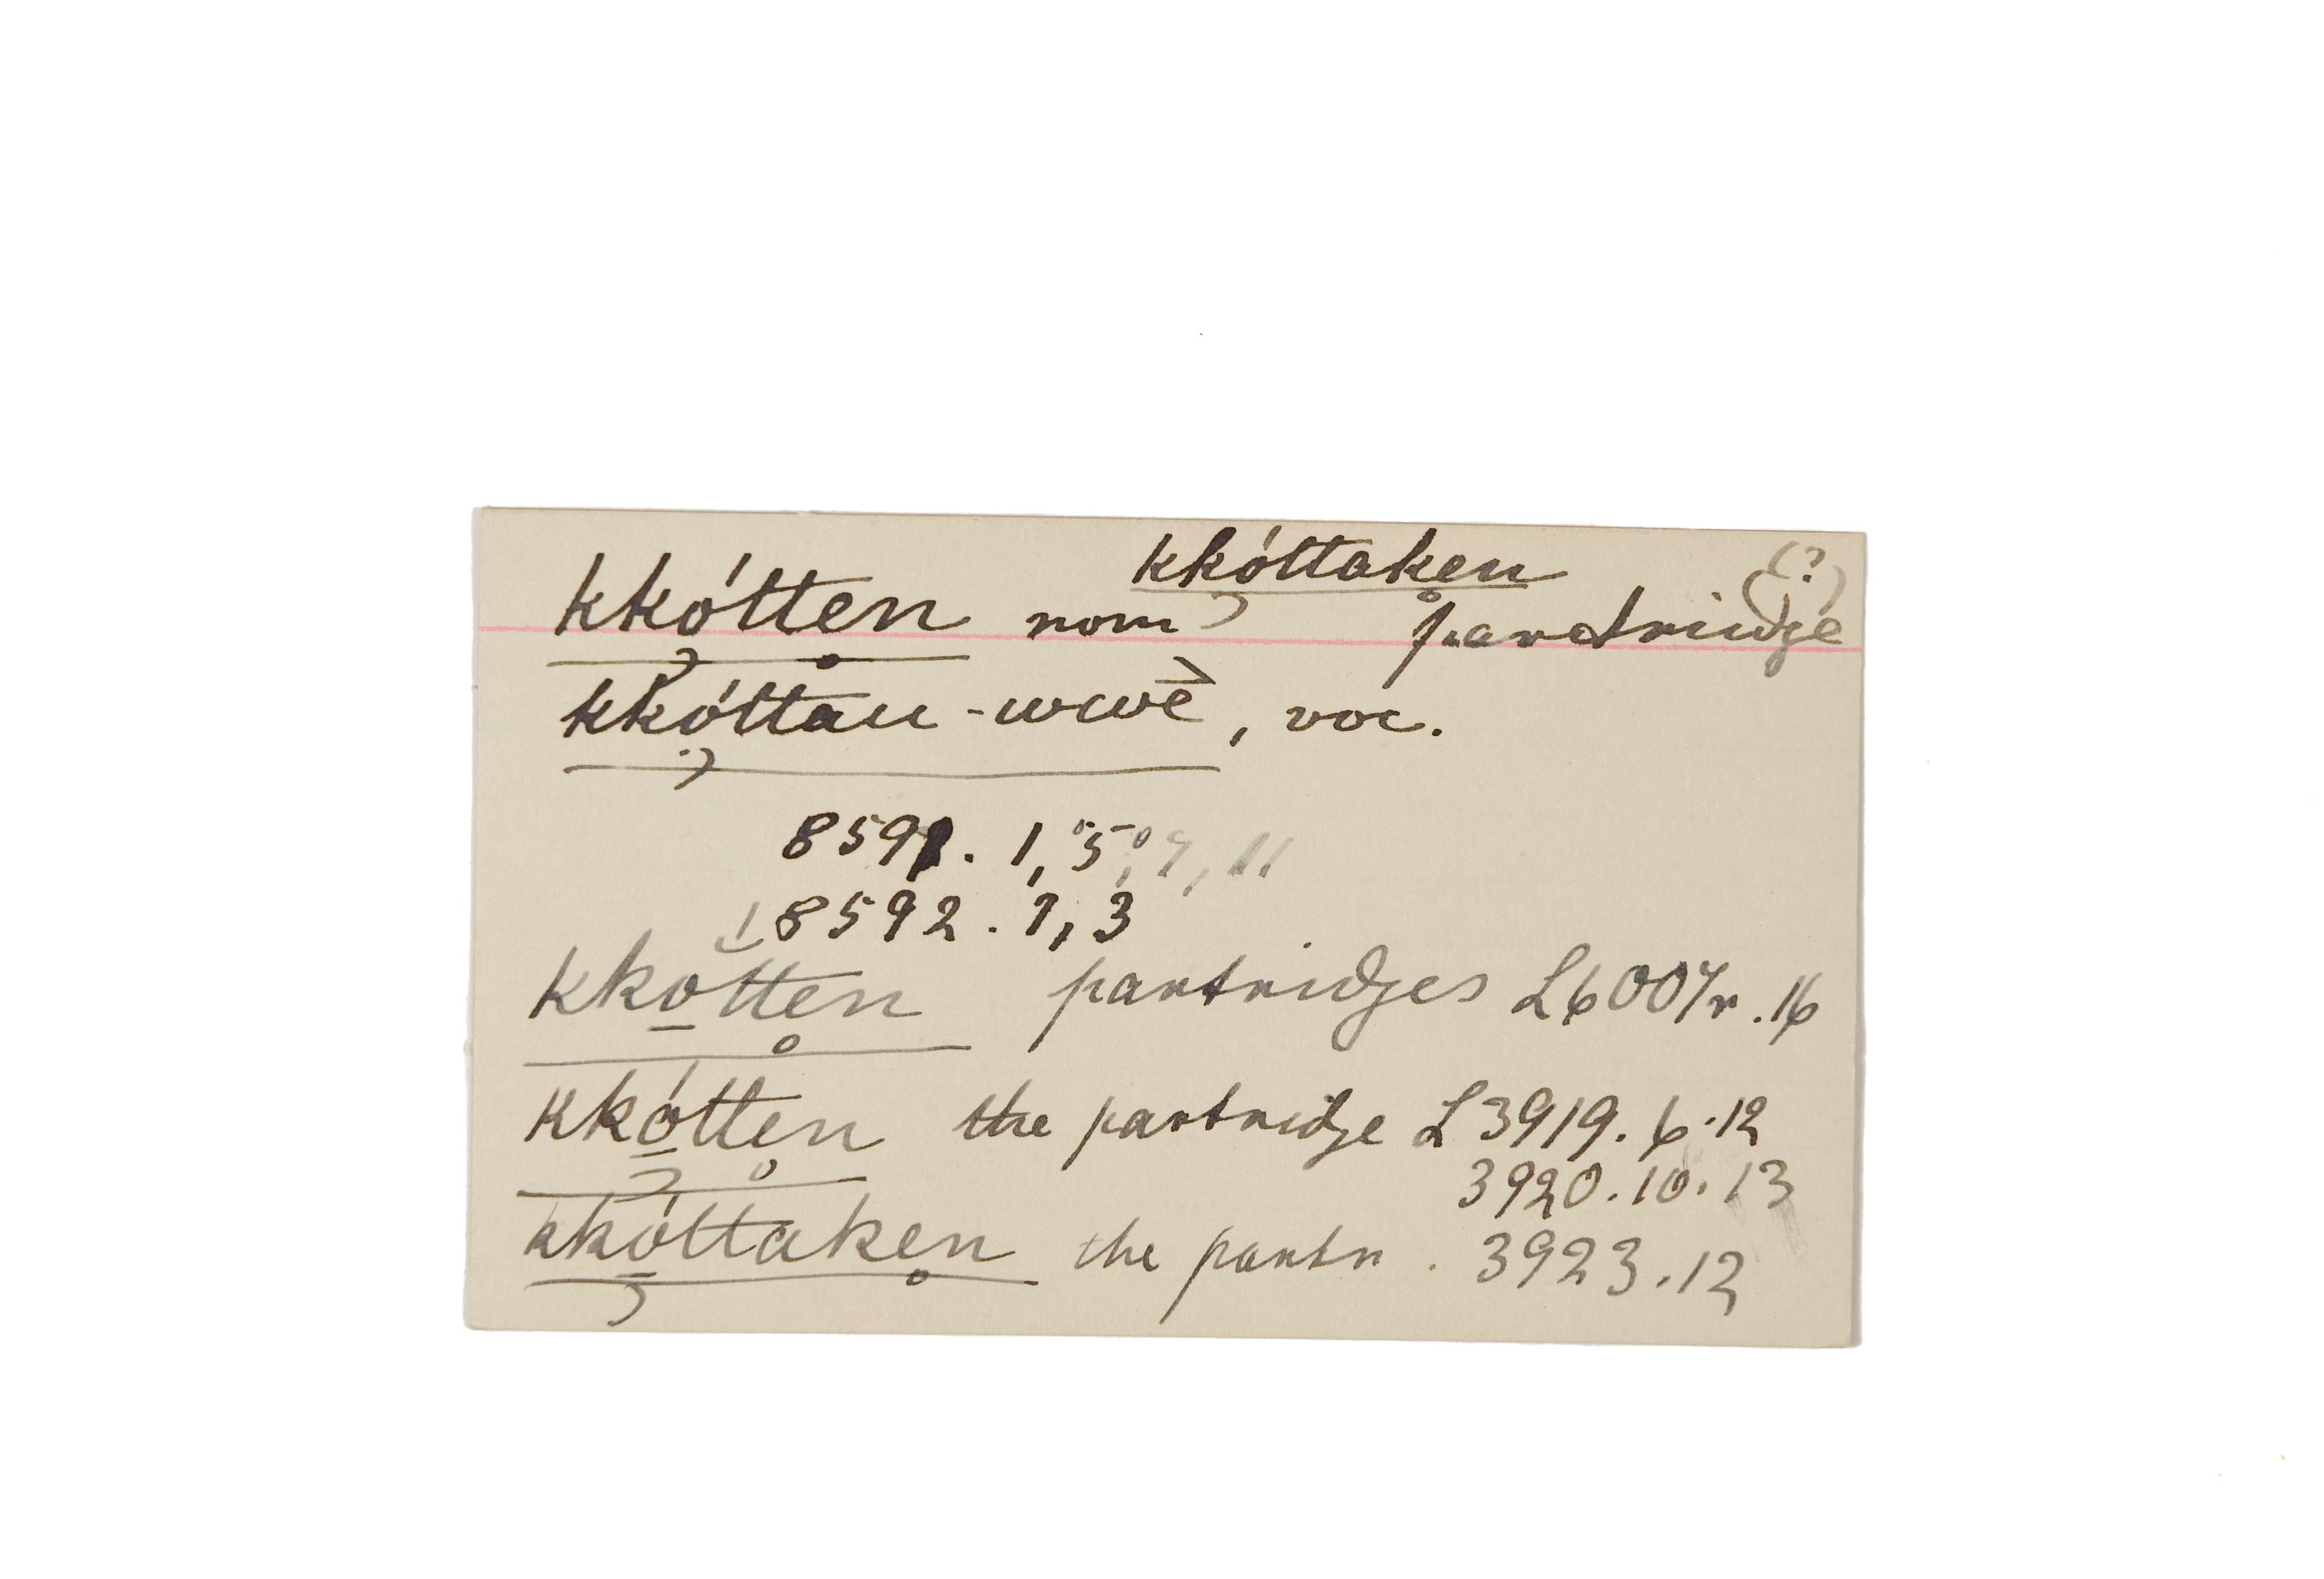 kkóttaken (?)
kkótten nom partridge
kkóttau-wwē, voc.
8591. 1, 5, 7, 11
8592. 1, 3
kkótten partridges L6007r.16
kkótten the partridge L3919.6.12
3920.10.13
kkóttaken the partr. 3923.12